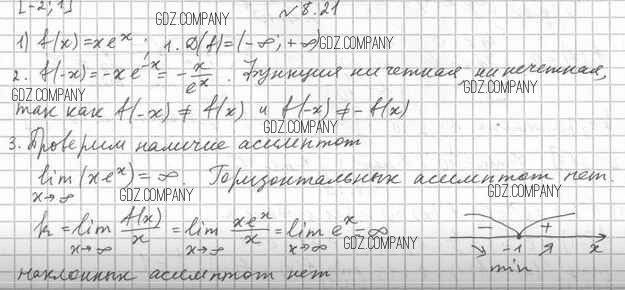 [-2; 1]
№ 8.21
GDZ.COMPANY
1) f(x) = xeˣ ; 1. D(f) = (-∞; +∞)
GDZ.COMPANY
2. f(-x) = -xe⁻ˣ = -x/eˣ. Функция ни четная, ни нечетная,
GDZ.COMPANY
GDZ.COMPANY
так как f(-x) ≠ f(x) и f(-x) ≠ -f(x)
GDZ.COMPANY
3. Проверим наличие асимптот
lim x→∞ (xeˣ) = ∞. Горизонтальных асимптот нет.
GDZ.COMPANY
GDZ.COMPANY
k = lim x→∞ f(x)/x = lim x→∞ xeˣ/x = lim x→∞ eˣ = ∞
GDZ.COMPANY
- +
-1 x
min
наклонных асимптот нет